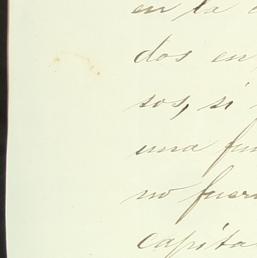 en la
dos en
sos, si
una fun
no fuer
capita